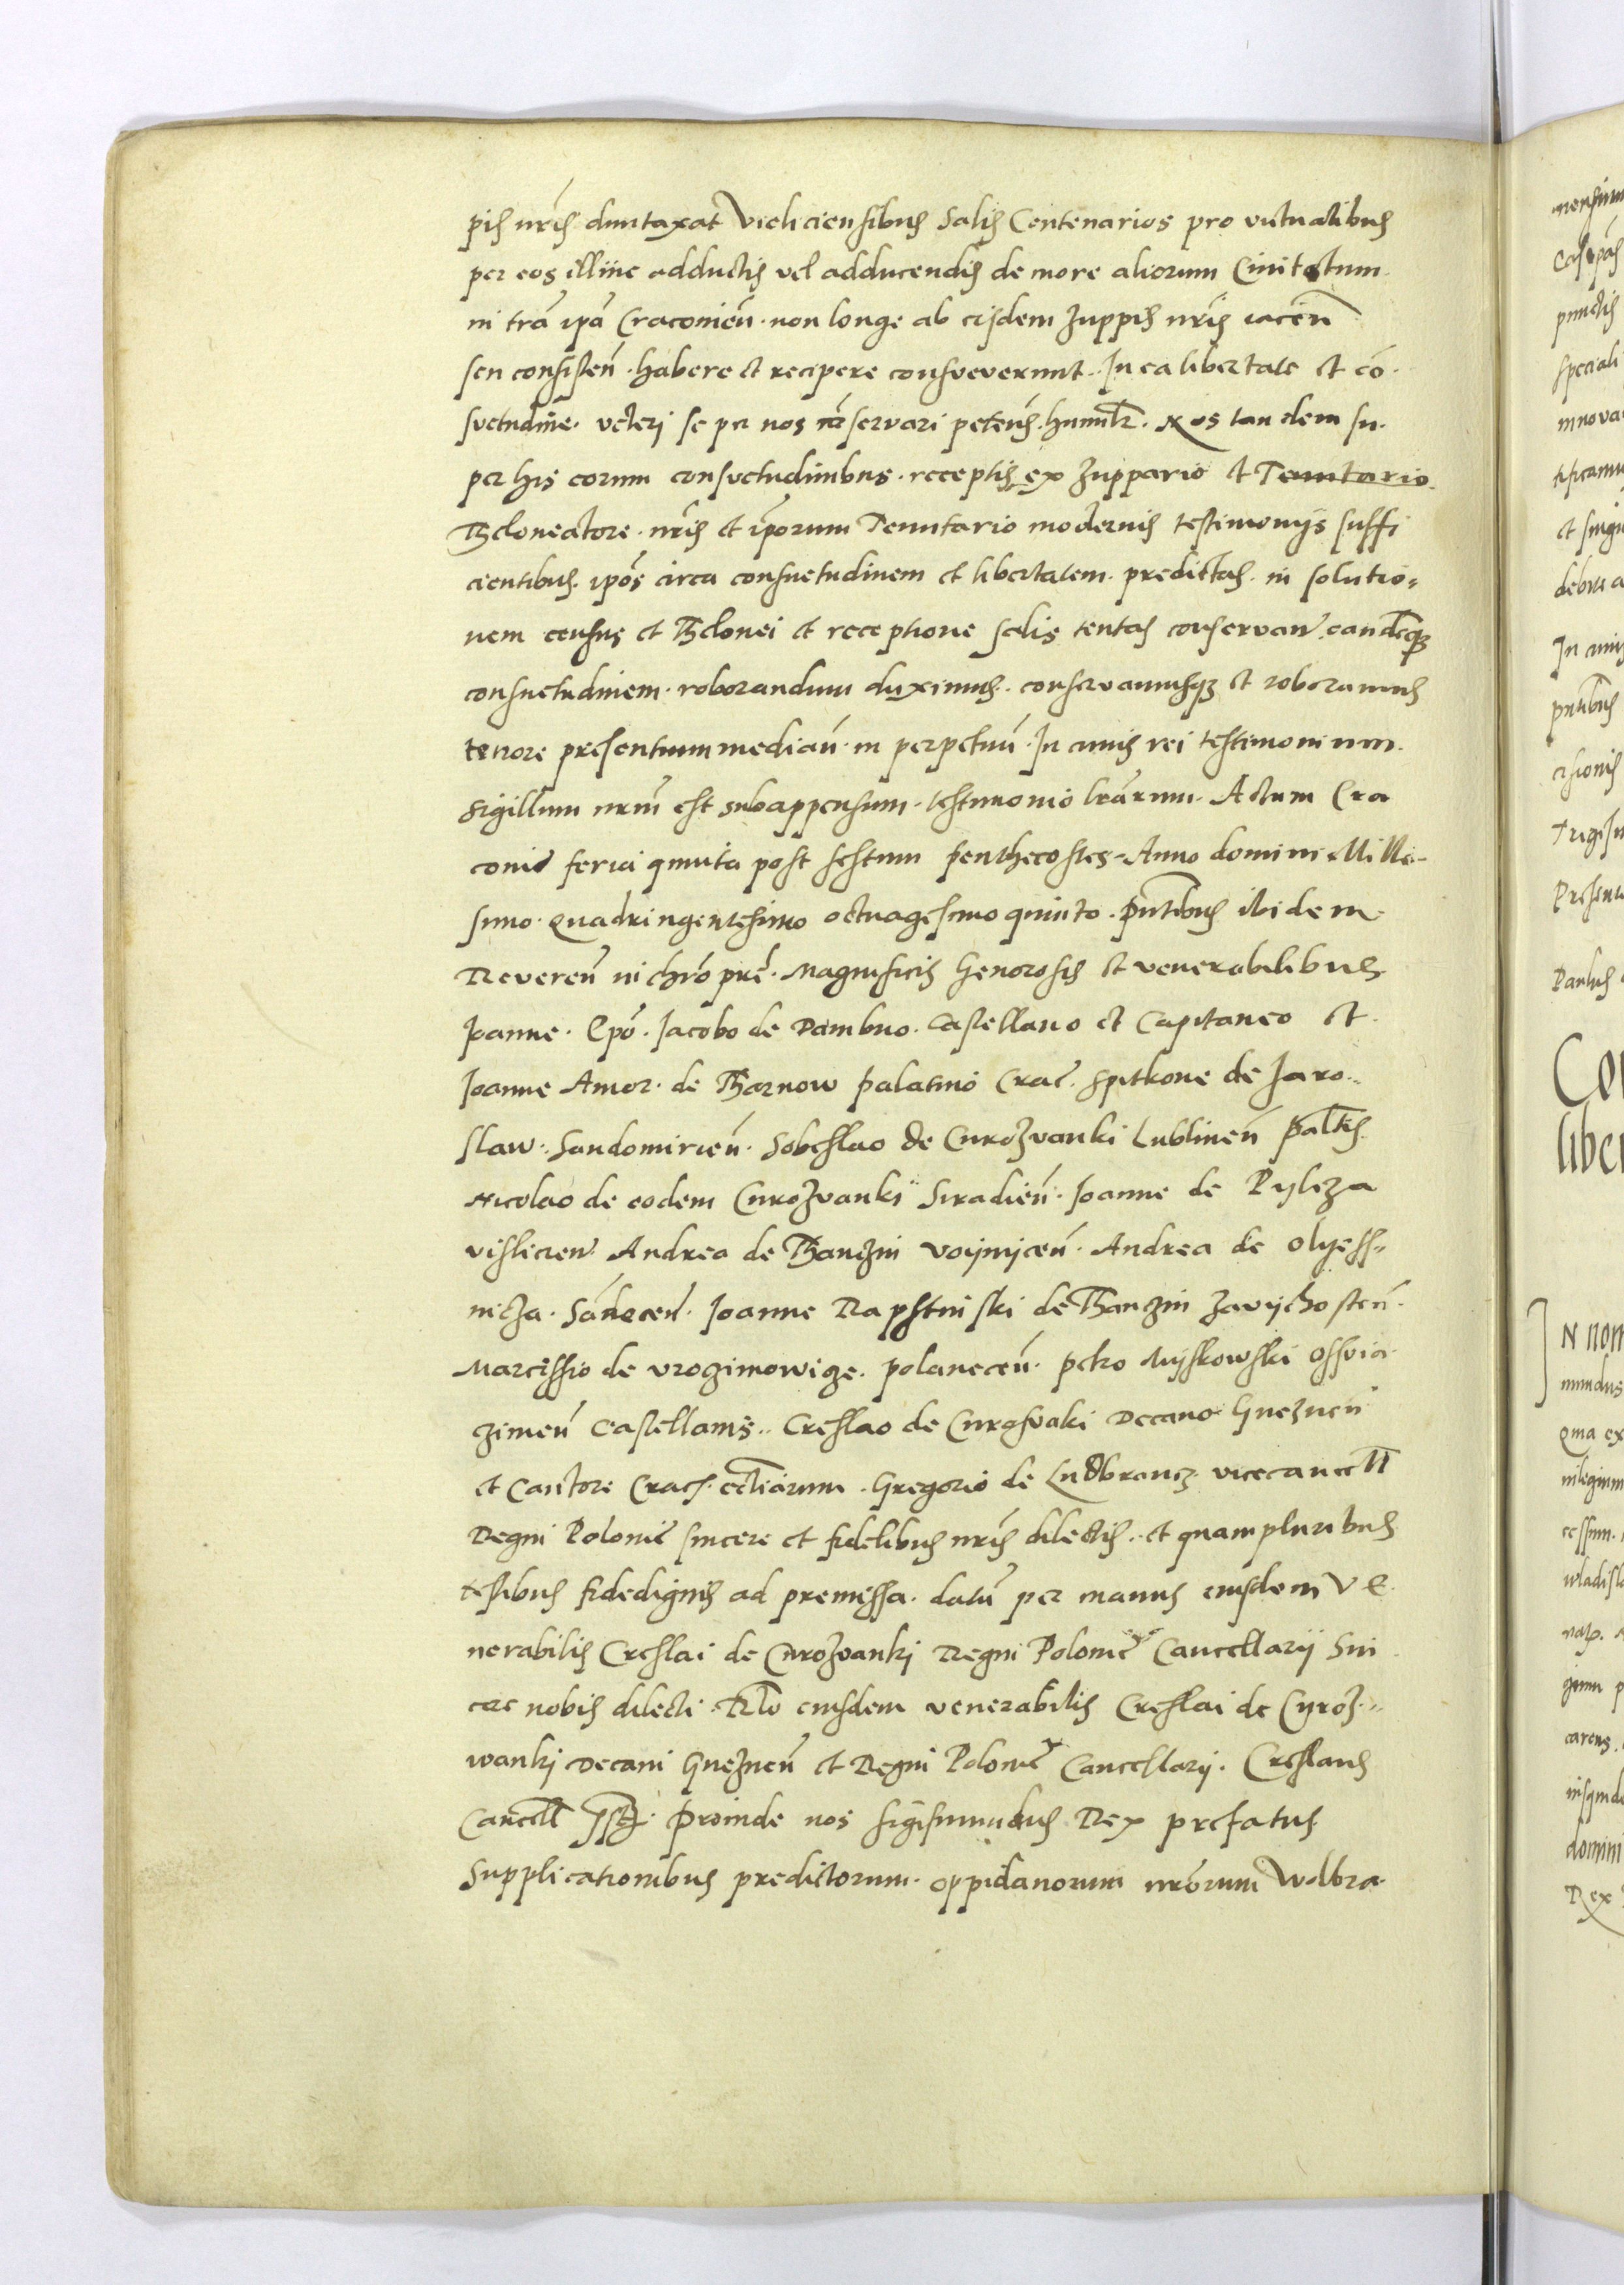 pis nrīs duntaxat Vieliciensibus Salis Centenarios pro victualibus
per eos illinc adductis vel adducendis de more aliorum Civitatum
in trā ipā Cracoviēn. non longe ab eisdem zuppis nrīs iaceñ
seu consisteñ. habere et recipere consveverunt. In ea libertate et cō.
svetudine. veteri se per nos conservari peteñs. humilr. Nos tandem su.
per his eorum consvetudinibus. receptis ex zuppario et Tenutario
Theloneatore. nrīs et ipōrum Tenutario modernis testimonijs suffi
cientibus. ipōs circa consuetudinem et libertatem. predictas. in solutio=
nem census et Thelonei et receptione salis tentas conservan. eandēqȝ
consuetudinem. roborandum duximus. conservamusqȝ et roboramus
tenore presentium mediañ. in perpetuū. In cuius rei testimonium.
sigillum nrūm est subappensum. testimonio lrārum. Actum Cra
covie feria quinta post festum penthecostes. Anno domini Mille-
simo. quadringentesimo octuagesimo quinto. pñtibus ibidem
Revereñ in chrō prē. Magnificis Generosis et venerabilibus
Joanne. Epō. Jacobo de Dambno. Castellano et Capitaneo et
Joanne Amor. de Tharnow palatino Crac. Spitkone de Jaro..
slaw. Sandomirieñ. Sobeslao de Curozvanki Lublineñ paltīs
Nicolao de eodem Curozvanki Siradieñ. Joanne de Pylcza
vislicien Andrea de Thanczin voijnijceñ. Andrea de Olyess=
nicza. Sandeceñ. Joanne Raphstinski de Thanczin zavijchosteñ.
Marcissio de vrozimowicze. polaneceñ. petro Mijskowski ossvia
zimeñ Castellanis.. Creslao de Curosvaki Decano Gnezneñ
et Cantore Crac. ecclīarum. Gregorio de Ludbrancz vicecancell
Regni Polonie sincere et fidelibus nrīs dilectis.. et quampluribus
testibus fidedignis ad premissa. datū per manus eiusdem Ve
nerabilis Creslai de Curozvankj Regni Polonie Cancellarij Sin
cere nobis dilecti. Rlō eiusdem venerabilis Creslai de Cyroz..
wankj Decani Gnezneñ et Regni Polonie Cancellarij. Creslaus
Cancell sst. Proinde nos Sigismundus Rex prefatus
Supplicationibus predictorum. oppidanorum nrōrum Wolbra.